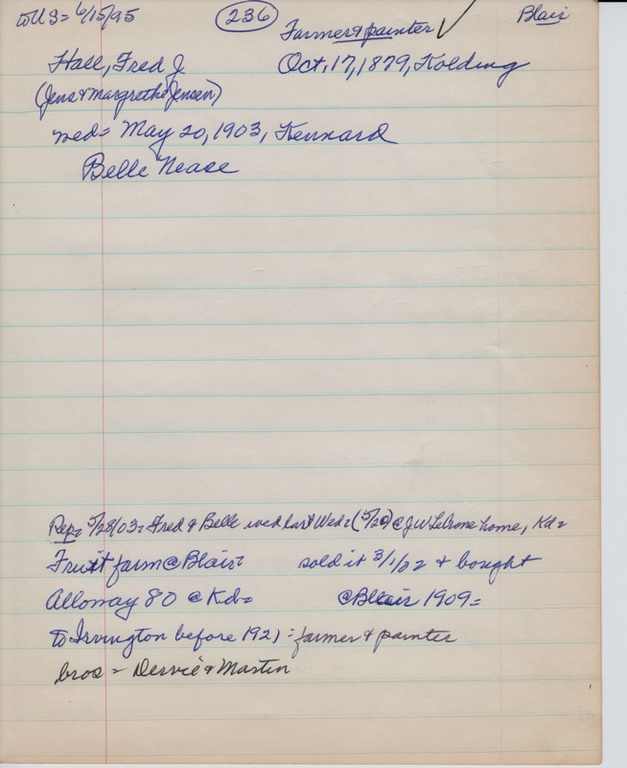 to U S = 6/15/95 236 Farmer & painter ✓ Blair
Hall, Fred J Oct, 17, 1879, Kolding
(Jens & Margrethe Jensen)
wed = May 20, 1903, Kennard
Belle Nease
Rep = 5/28/03 = Fred & Belle wed last Wed = (5/20) @ J W LeCrone home, Kd =
Fruit farm @ Blair = sold it 3/1/02 & bought
Alloway 80 @ Kd = @ Blair 1909 =
to Irvington before 1921 = farmer & painter
bros = Dervie & Martin